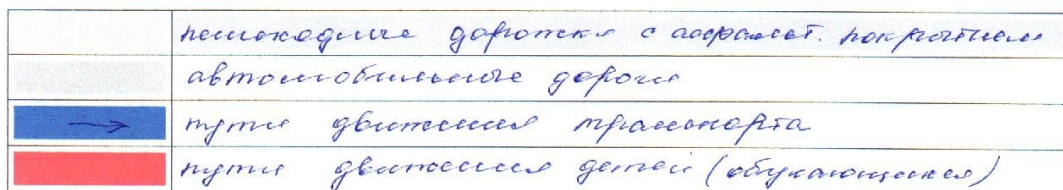 пешеходные дорожки с асфальт. покрытием
автомобильные дороги
пути движения транспорта
пути движения детей (обучающихся)